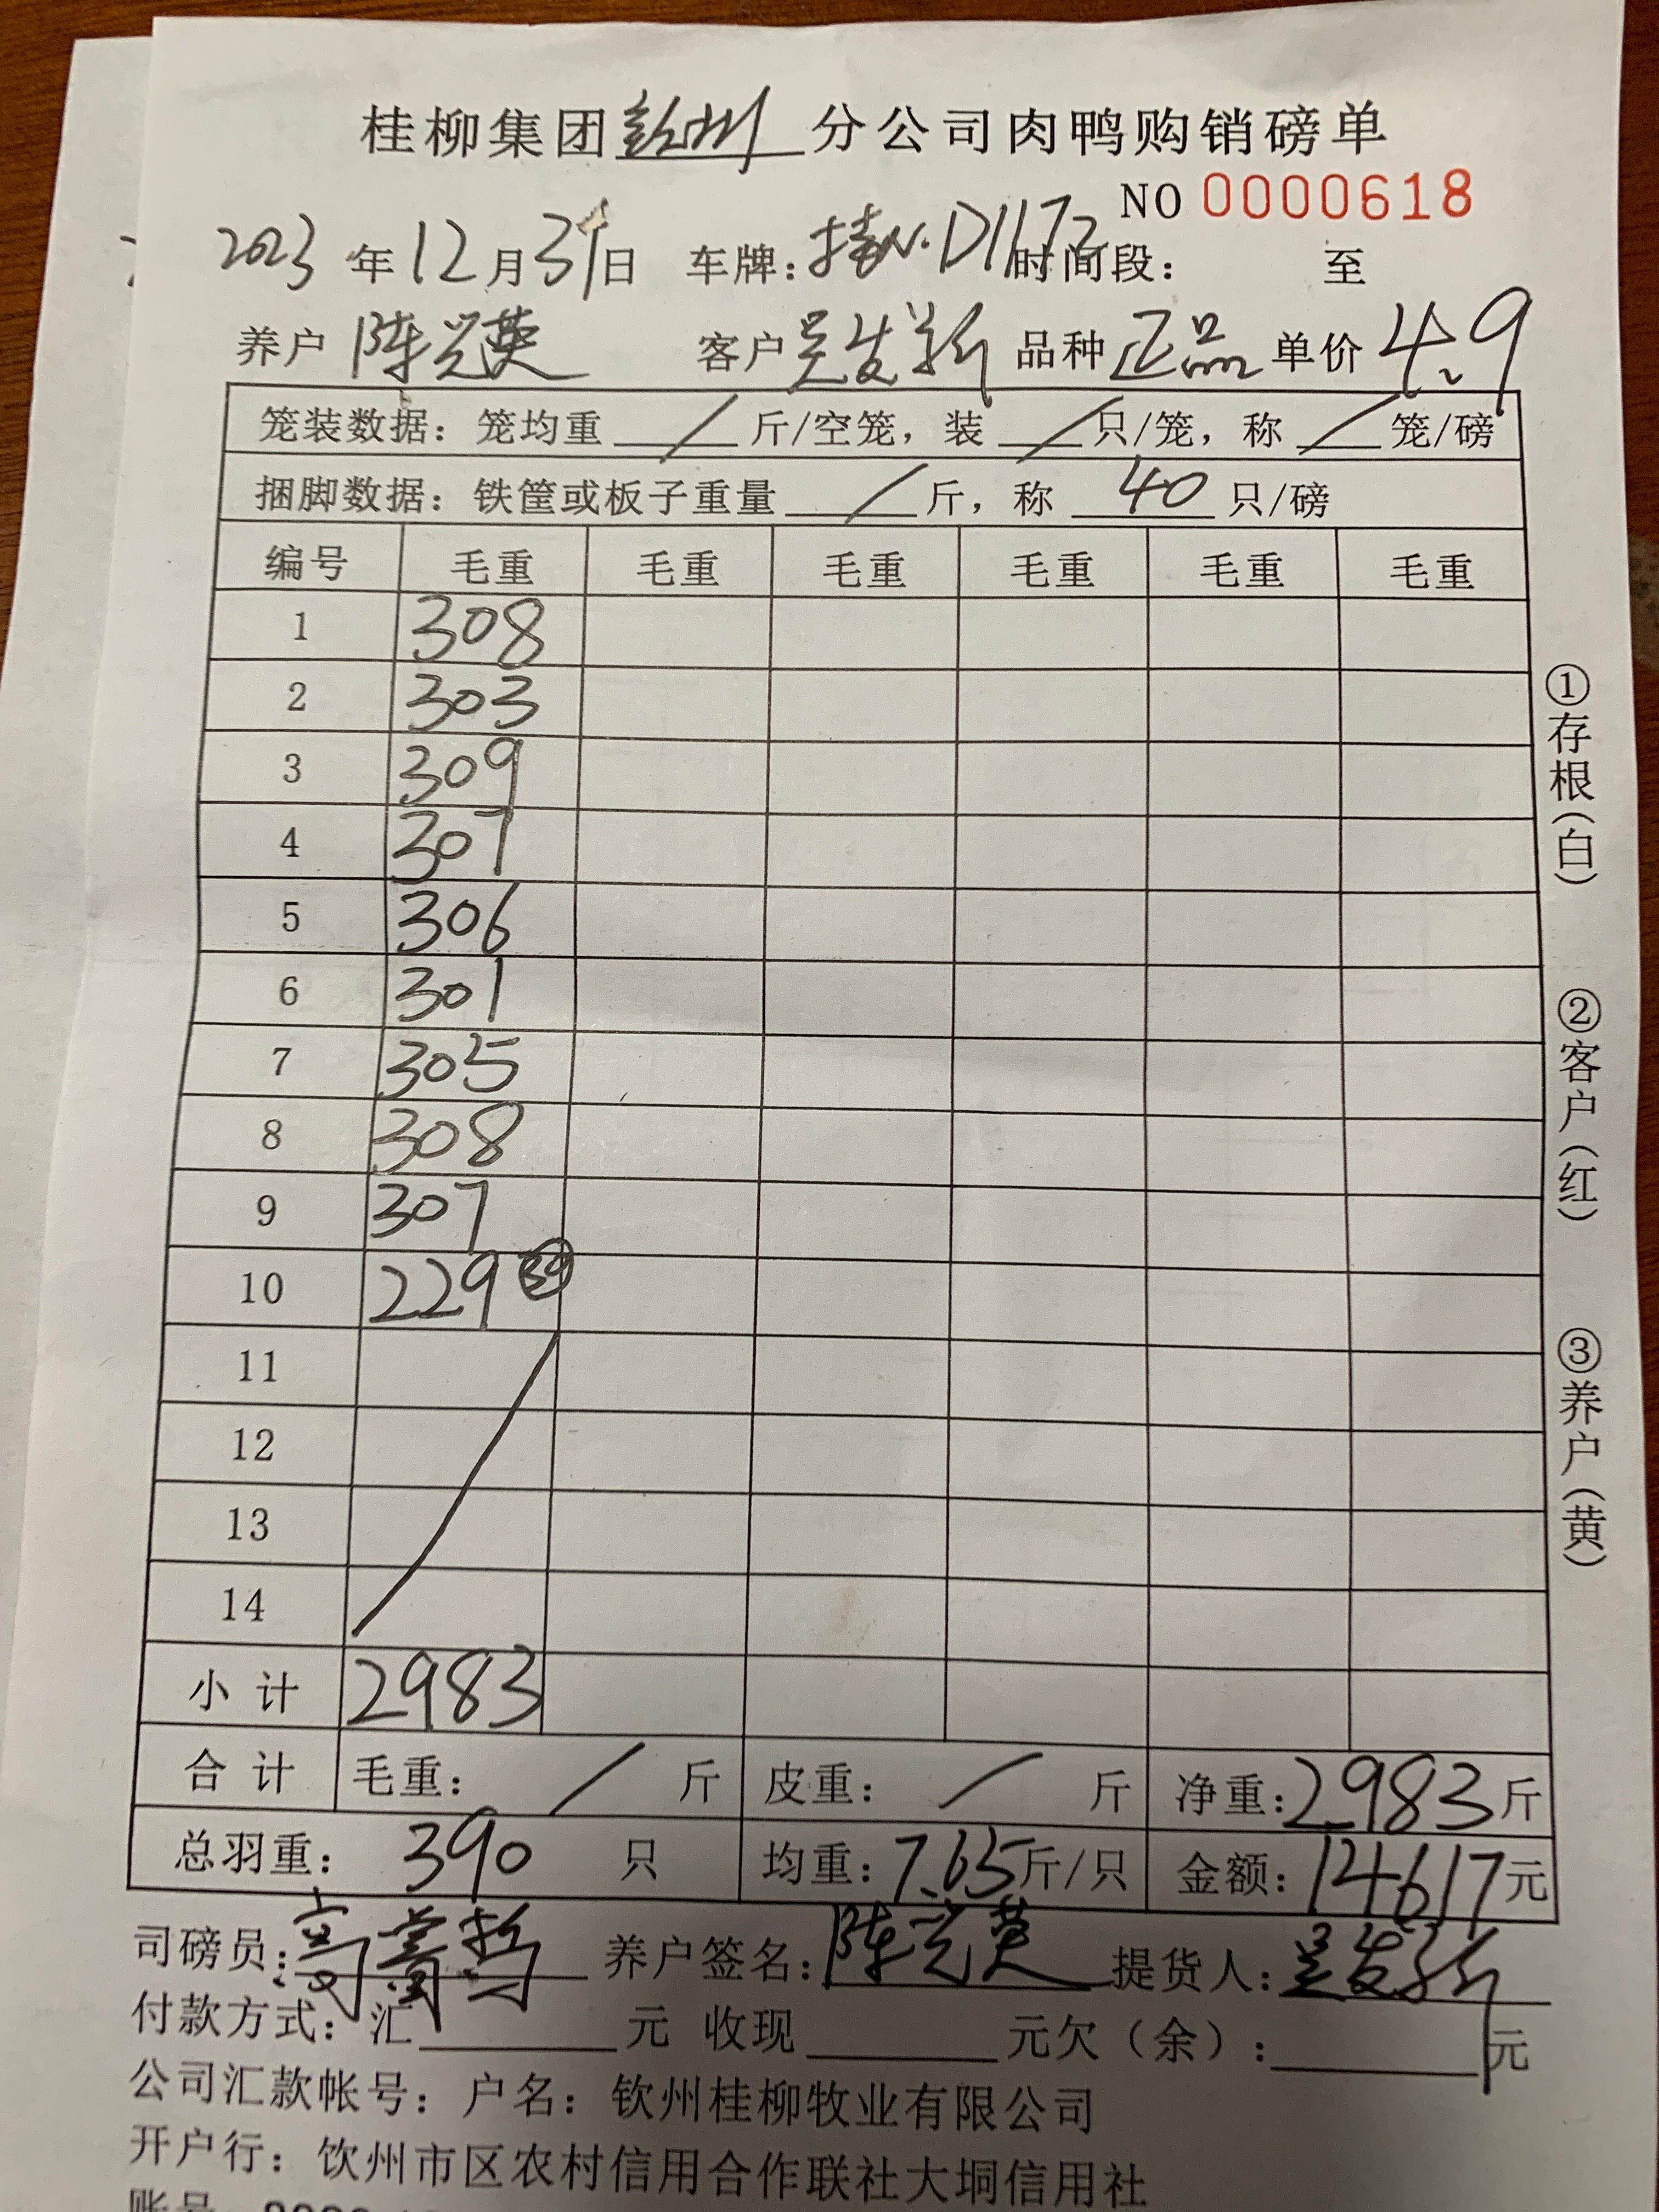 桂柳集团钦州分公司肉鸭购销磅单
NO 0000618
2023年12月31日 车牌: D1173 时间段: 至
养户 陈兴英 客户 吴发新 品种 正品 单价 4.9
笼装数据: 笼均重 / 斤/空笼, 装 / 只/笼, 称 / 笼/磅
捆脚数据: 铁筐或板子重量 / 斤, 称 40 只/磅
编号 毛重 毛重 毛重 毛重 毛重 毛重
1 308
2 303
3 309
4 307
5 306
6 301
7 305
8 308
9 307
10 229 30
11
12
13
14
小计 2983
合计 毛重: / 斤 皮重: / 斤 净重: 2983 斤
总羽重: 390 只 均重: 7.65 斤/只 金额: 14617 元
司磅员: 养户签名: 陈兴英 提货人: 吴发新
付款方式: 汇 元 收现 元欠(余): 元
公司汇款帐号: 户名: 钦州桂柳牧业有限公司
开户行: 钦州市区农村信用合作联社大垌信用社
账号:
①存根(白)
②客户(红)
③养户(黄)